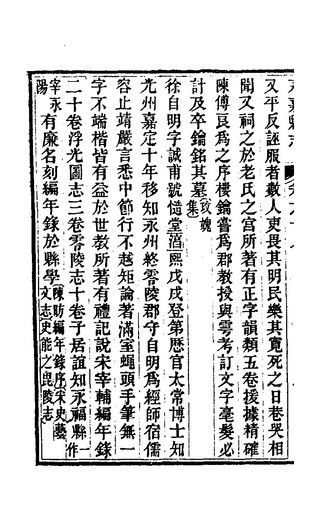 又平反誣服者數人吏畏其明民樂其寬死之日巷哭相
聞又祠之於老氏之宮所著有正字韻類五卷援據精確
陳傅良爲之序樓鑰嘗爲郡敎授與雩考訂文字毫髮必
計及卒鑰銘其墓攻媿集
徐自明字誠甫號慥堂淳熙戊戌登第歷官太常博士知
光州嘉定十年移知永州終零陵郡守自明爲經師宿儒
容止靖嚴言悉中節行不越矩論著滿室蠅頭手筆無一
字不端楷皆有益於世敎所著有禮記說宋宰輔編年錄
二十卷浮光圖志三卷零陵志十卷子居誼知永福縣作
宰永陽有廉名刻編年錄於縣學陳昉編年錄序宋史藝文志史能之毘陵志